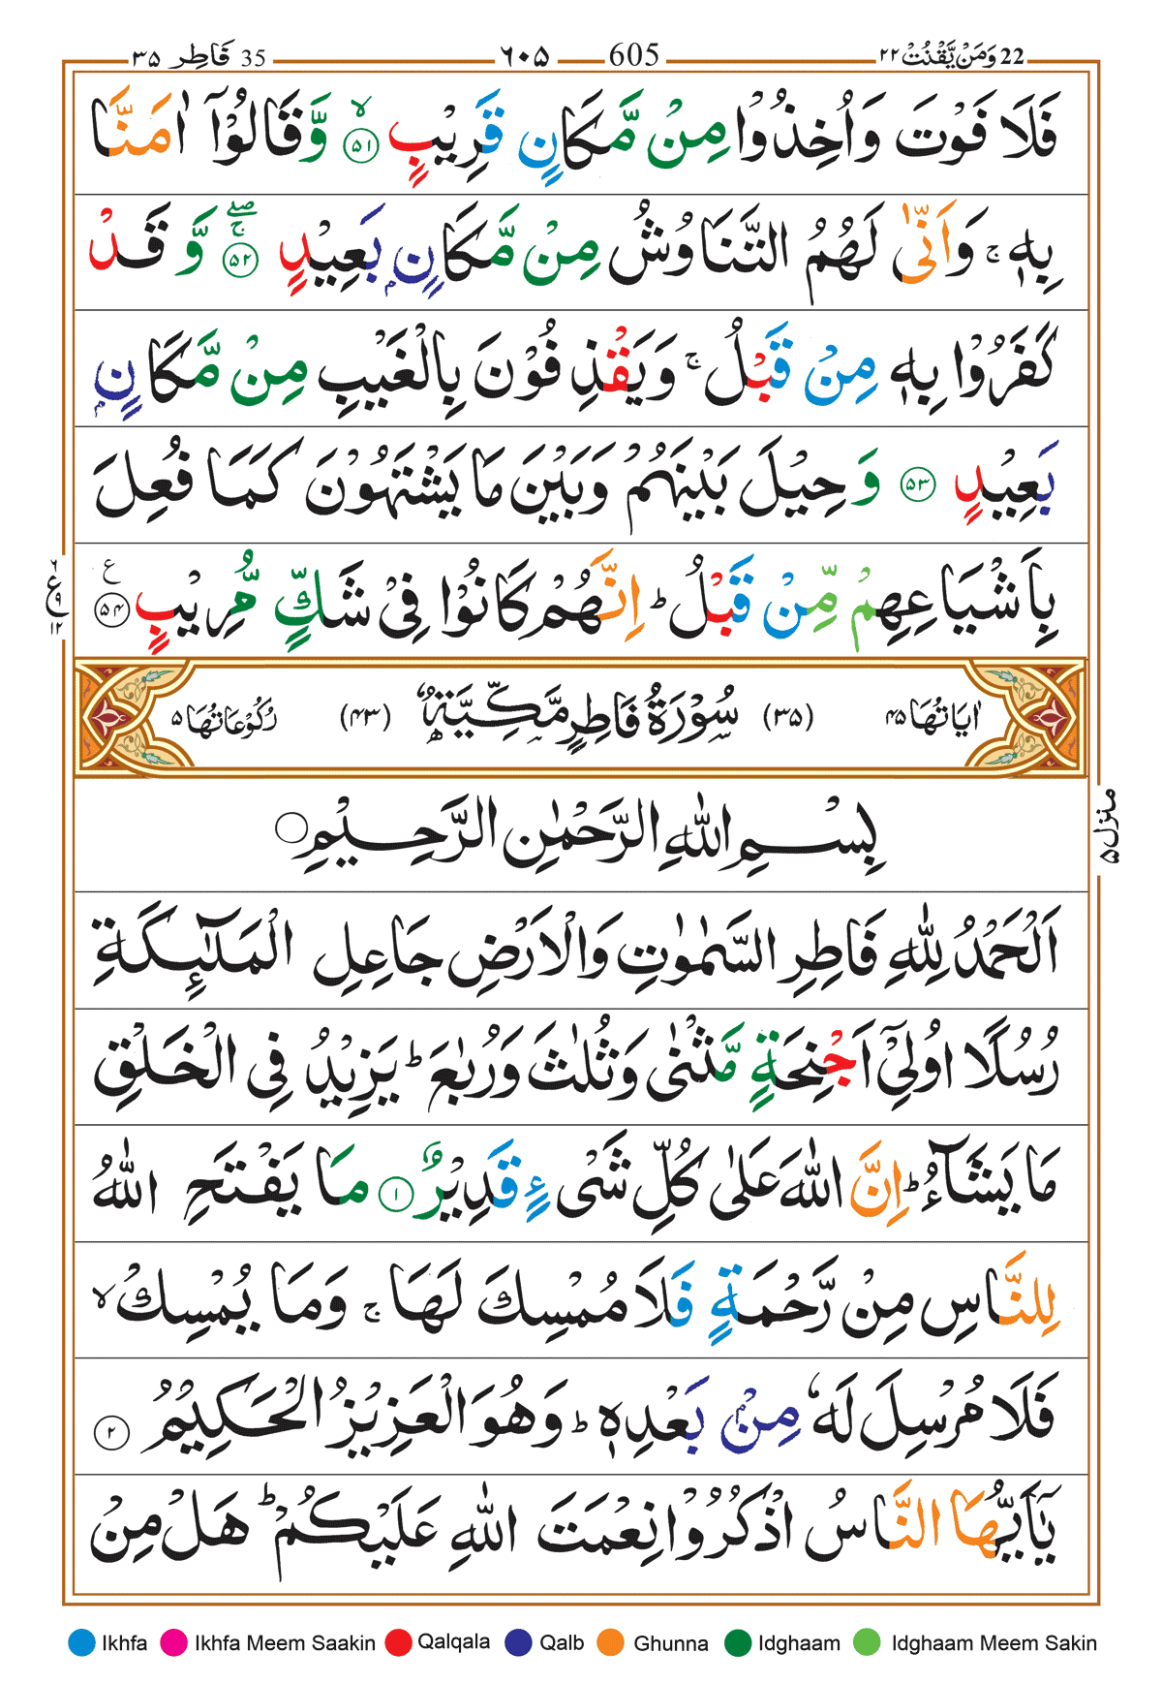 35 فَاطِر ٣٥ ٦٠٥ 605 22 وَمَنْ يَّقْنُتْ ٢٢
فَلَا فَوْتَ وَاُخِذُوْا مِنْ مَّكَانٍ قَرِيْبٍ ۙ‏﴿۵۱﴾ وَّقَالُوْۤا اٰمَنَّا
بِهٖ ۚ وَاَنّٰى لَهُمُ التَّنَاوُشُ مِنْ مَّكَانٍۢ بَعِيْدٍ ۚۖ‏﴿۵۲﴾ وَّقَدْ
كَفَرُوْا بِهٖ مِنْ قَبْلُ ۚ وَيَقْذِفُوْنَ بِالْغَيْبِ مِنْ مَّكَانٍۢ
بَعِيْدٍ ‏﴿۵۳﴾ وَحِيْلَ بَيْنَهُمْ وَبَيْنَ مَا يَشْتَهُوْنَ كَمَا فُعِلَ
بِاَشْيَاعِهِمْ مِّنْ قَبْلُ ؕ اِنَّهُمْ كَانُوْا فِىْ شَكٍّ مُّرِيْبٍ ‏﴿۵۴﴾ ع
٦ ع ٩ ١٢
اٰيَاتُهَا ۴۵ (۳۵) سُوْرَةُ فَاطِرٍ مَّكِّيَّةٌ (۴۳) رُكُوْعَاتُهَا ۵
بِسْمِ اللّٰهِ الرَّحْمٰنِ الرَّحِيْمِ
منزل ۵
اَلْحَمْدُ لِلّٰهِ فَاطِرِ السَّمٰوٰتِ وَالْاَرْضِ جَاعِلِ الْمَلٰٓئِكَةِ
رُسُلًا اُولِىْۤ اَجْنِحَةٍ مَّثْنٰى وَثُلٰثَ وَرُبٰعَ ؕ يَزِيْدُ فِى الْخَلْقِ
مَا يَشَآءُ ؕ اِنَّ اللّٰهَ عَلٰى كُلِّ شَىْءٍ قَدِيْرٌ ‏﴿۱﴾ مَا يَفْتَحِ اللّٰهُ
لِلنَّاسِ مِنْ رَّحْمَةٍ فَلَا مُمْسِكَ لَهَا ۚ وَمَا يُمْسِكْ ۙ
فَلَا مُرْسِلَ لَهٗ مِنْۢ بَعْدِهٖ ؕ وَهُوَ الْعَزِيْزُ الْحَكِيْمُ ‏﴿۲﴾
يٰۤاَيُّهَا النَّاسُ اذْكُرُوْا نِعْمَتَ اللّٰهِ عَلَيْكُمْ ؕ هَلْ مِنْ
Ikhfa Ikhfa Meem Saakin Qalqala Qalb Ghunna Idghaam Idghaam Meem Sakin